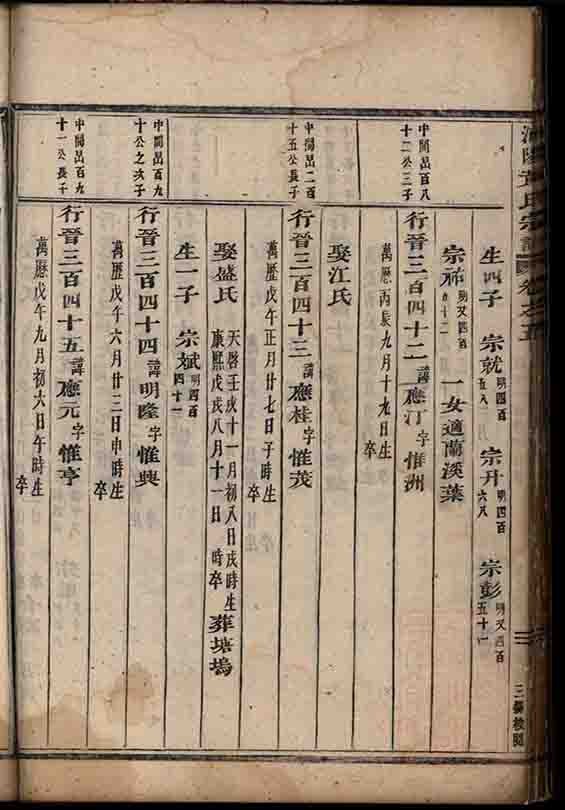 氏宗譜 卷之五
生四子 宗就 明四百五八 宗升 明四百六八 宗彭 明又四百五十一
宗福 明又四百九十二 一女適蘭溪葉
中閣出百八十二公三子
行晉三百四十二 諱應汀 字惟洲
萬歷丙辰九月十九日生 卒
娶江氏
中閣出二百十五公長子
行晉三百四十三 諱應桂 字惟茂
萬歷戊午正月廿七日子時生 卒
娶盛氏 天啓壬戌十一月初八日戌時生 康熙戊戌八月十一日 時卒 葬塘塢
生一子 宗斌 明四百四十一
中閣出百九十公之次子
行晉三百四十四 諱明隆 字惟興
萬歷戊午六月廿三日申時生 卒
中閣出百九十一公長子
行晉三百四十五 諱應元 字惟亨
萬歷戊午九月初六日午時生 卒